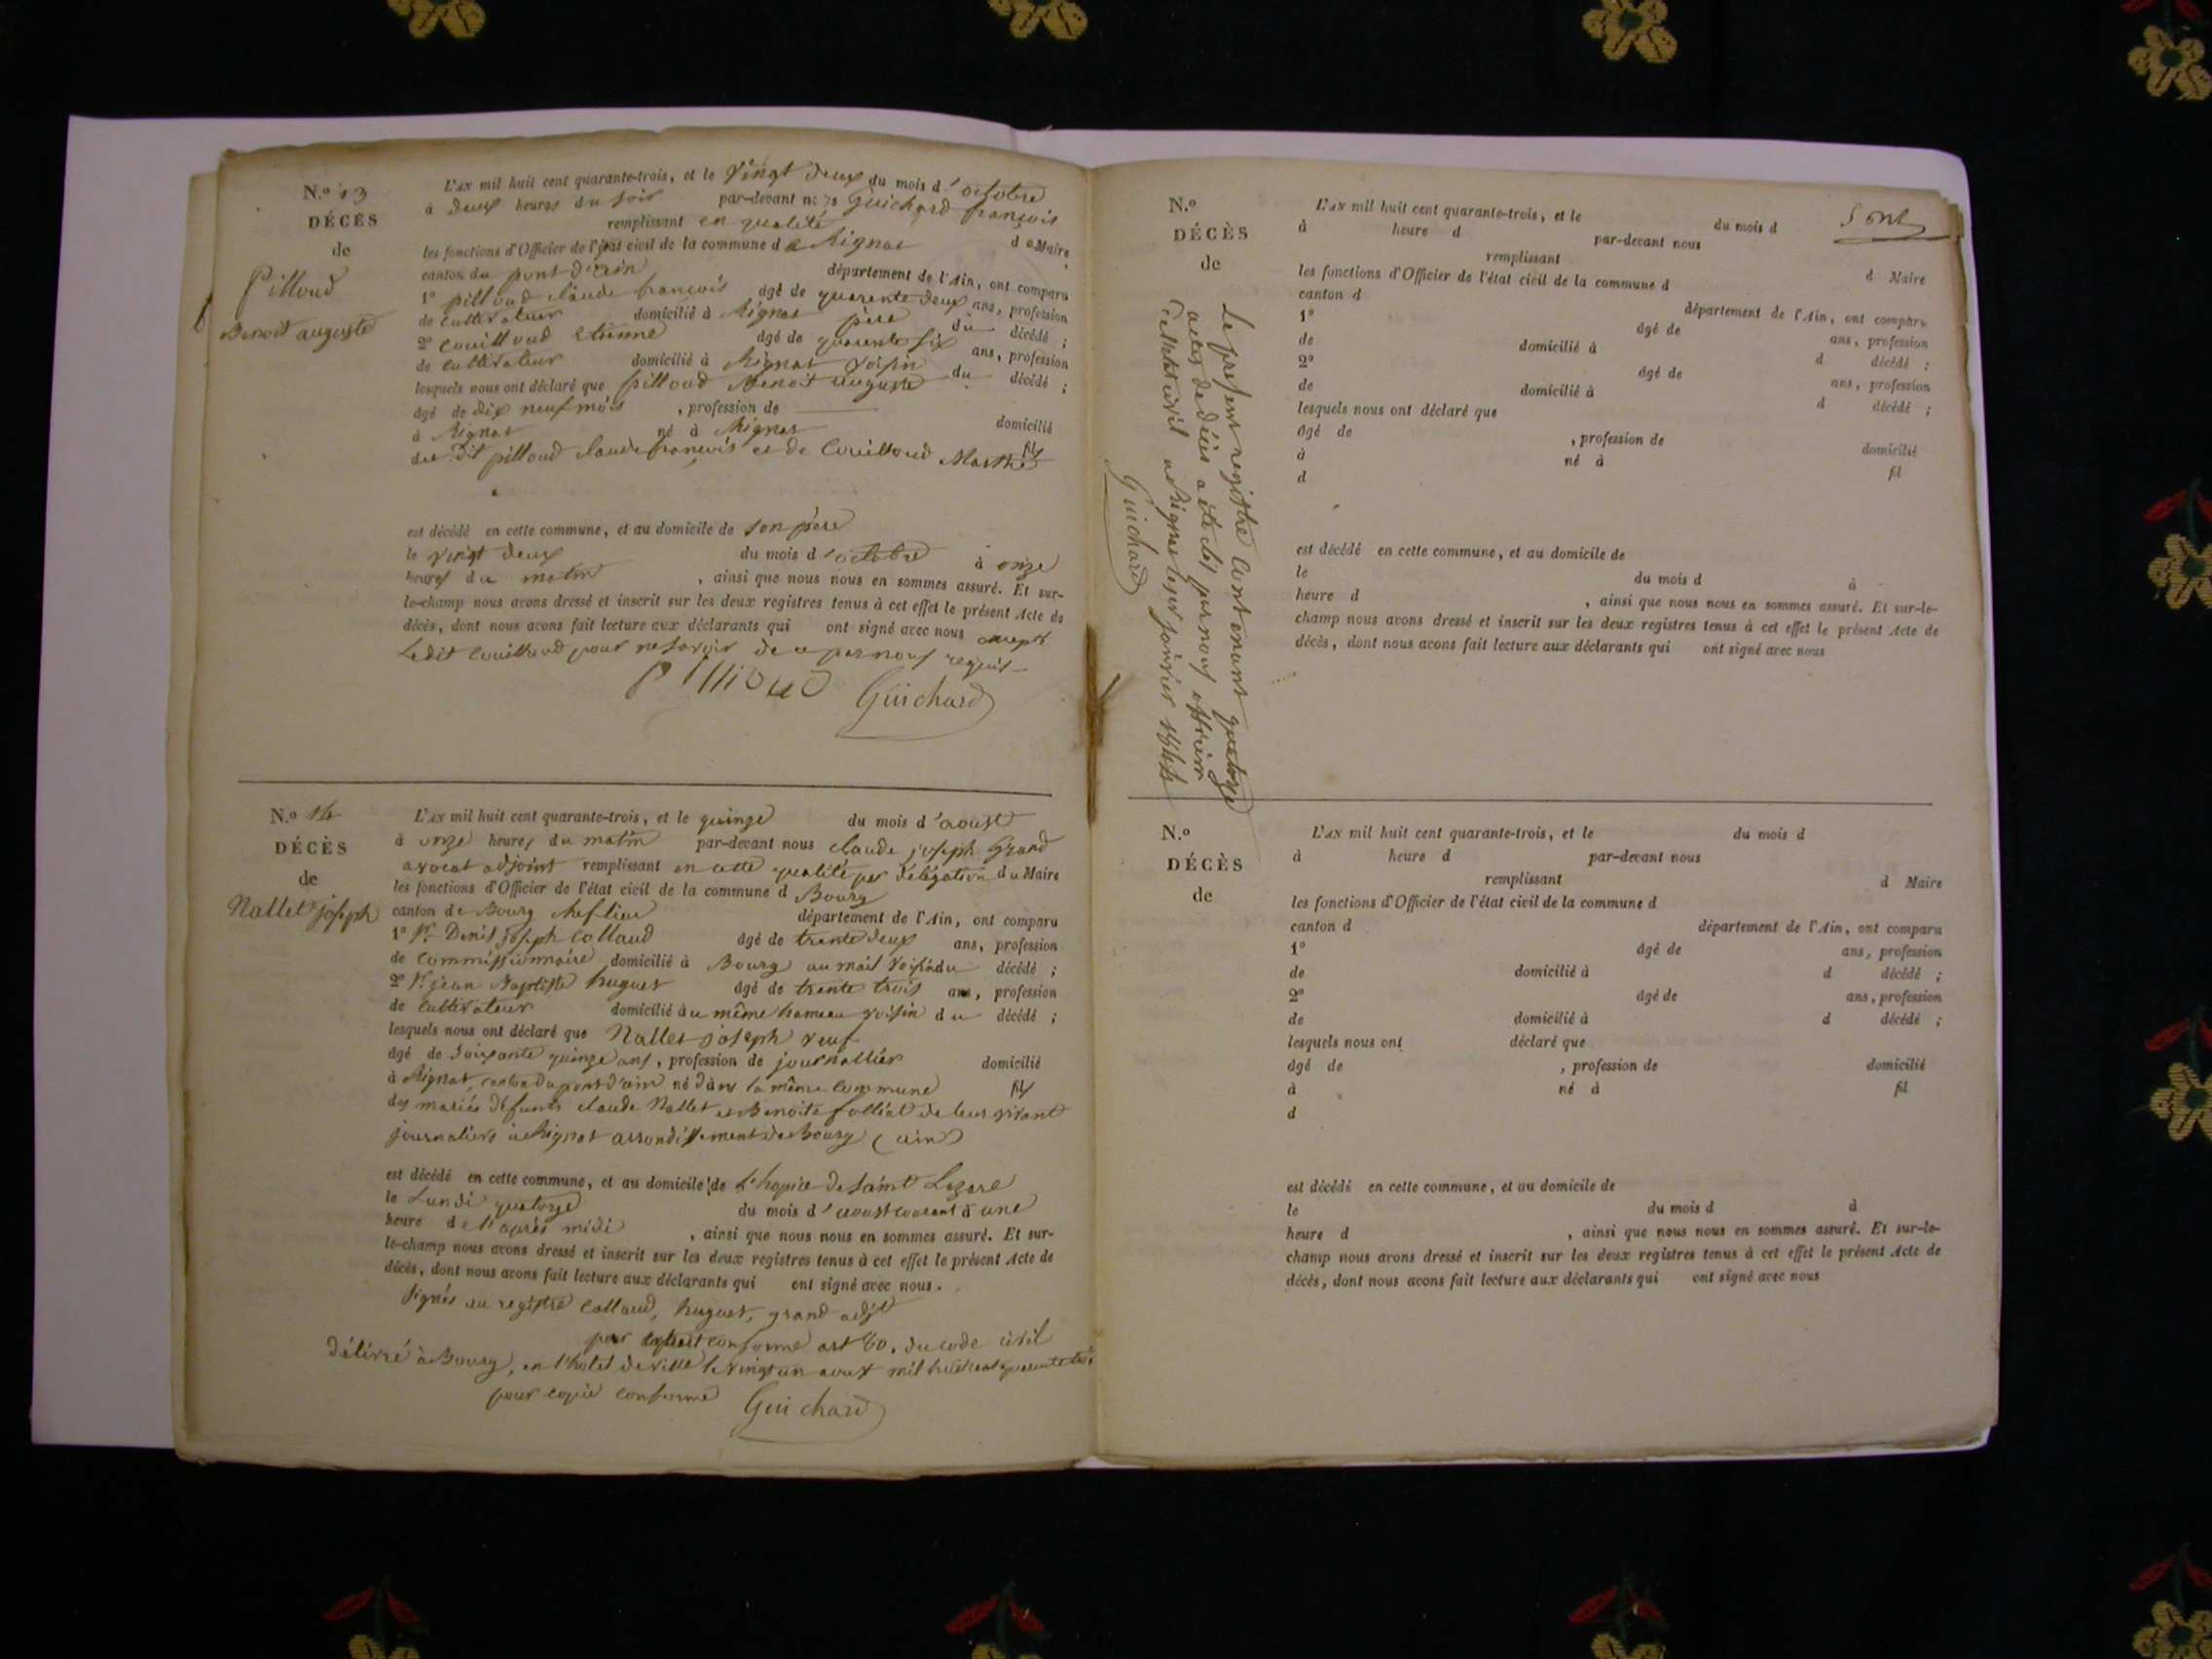 N.o 13
DÉCÈS
de
Pilloud
Benoit auguste
L'AN mil huit cent quarante-trois, et le vingt deux du mois d'octobre
à deux heures du soir par-devant nous Guichard françois
remplissant en qualité de Maire
les fonctions d'Officier de l'état civil de la commune de Rignat
canton du pont d'ain département de l'Ain, ont comparu
1° pilloud claude françois âgé de quarente deux ans, profession
de cultivateur domicilié à Rignat père du décédé ;
2° Couilloud Etienne âgé de quarente six ans, profession
de cultivateur domicilié à Rignat voisin du décédé ;
lesquels nous ont déclaré que pilloud Benoit auguste
âgé de dix neuf mois , profession de domicilié
à Rignat né à Rignat fils
du dit pilloud claude françois et de Couilloud Marthe
est décédé en cette commune, et au domicile de son père
le vingt deux du mois d'octobre à onze
heures du matin , ainsi que nous nous en sommes assuré. Et sur-
le-champ nous avons dressé et inscrit sur les deux registres tenus à cet effet le présent Acte de
décès, dont nous avons fait lecture aux déclarants qui ont signé avec nous excepté
Ledit Couilloud pour ne savoir de ce par nous requis
Pilloud Guichard
N.o 14
DÉCÈS
de
Nallet joseph
L'AN mil huit cent quarante-trois, et le quinze du mois d'aoust
à onze heures du matin par-devant nous claude joseph Grand
avocat adjoint remplissant en cette qualité par délégation du Maire
les fonctions d'Officier de l'état civil de la commune d Bourg
canton de Bourg chef lieu département de l'Ain, ont comparu
1° Sr. Denis joseph Collaud âgé de trente deux ans, profession
de Commissionnaire domicilié à Bourg au mail voisin du décédé ;
2° Sr. jean Baptiste huguet âgé de trente trois ans, profession
de Cultivateur domicilié au même hameau voisin du décédé ;
lesquels nous ont déclaré que Nallet joseph veuf
âgé de soixante quinze ans, profession de journallier domicilié
à Rignat, canton du pont d'ain né dans la même Commune fils
des mariés défunts claude Nallet et Benoite folliat de leur vivant
journaliers à Rignat arrondissement de Bourg (ain)
est décédé en cette commune, et au domicile de l'hopice de saint Lazare
le Lundi quatorze du mois d'aoust courant à une
heure de l'après midi , ainsi que nous nous en sommes assuré. Et sur-
le-champ nous avons dressé et inscrit sur les deux registres tenus à cet effet le présent Acte de
décès, dont nous avons fait lecture aux déclarants qui ont signé avec nous.
signés au registre Collaud, huguet, grand adjt
pour extrait conforme art 80. du code civil
Délivré à Bourg, en l'hotel de ville le vingt un aoust mil huit cent quarante trois
pour copie conforme Guichard
Sont
Le present registre Contenant quatorze
actes de décès a été clos par nous officier
de l'état civil à Rignat le 1er janvier 1844
Guichard
N.o
DÉCÈS
de
L'AN mil huit cent quarante-trois, et le du mois d
à heure d par-devant nous
remplissant d Maire
les fonctions d'Officier de l'état civil de la commune d
canton d département de l'Ain, ont comparu
1° âgé de ans, profession
de domicilié à d décédé ;
2° âgé de ans, profession
de domicilié à d décédé ;
lesquels nous ont déclaré que
âgé de , profession de domicilié
à né à fil
d
est décédé en cette commune, et au domicile de
le du mois d à
heure d , ainsi que nous nous en sommes assuré. Et sur-le-
champ nous avons dressé et inscrit sur les deux registres tenus à cet effet le présent Acte de
décès, dont nous avons fait lecture aux déclarants qui ont signé avec nous
N.o
DÉCÈS
de
L'AN mil huit cent quarante-trois, et le du mois d
à heure d par-devant nous
remplissant d Maire
les fonctions d'Officier de l'état civil de la commune d
canton d département de l'Ain, ont comparu
1° âgé de ans, profession
de domicilié à d décédé ;
2° âgé de ans, profession
de domicilié à d décédé ;
lesquels nous ont déclaré que
âgé de , profession de domicilié
à né à fil
d
est décédé en cette commune, et au domicile de
le du mois d à
heure d , ainsi que nous nous en sommes assuré. Et sur-le-
champ nous avons dressé et inscrit sur les deux registres tenus à cet effet le présent Acte de
décès, dont nous avons fait lecture aux déclarants qui ont signé avec nous